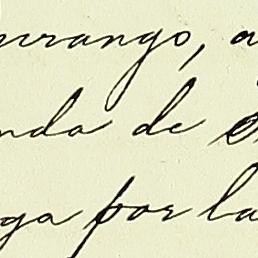 urango, a
nda de
ga por la